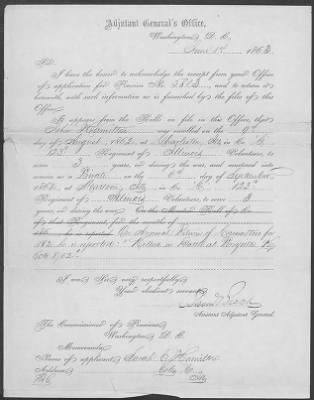 Adjutant General's Office,
Washington, D. C.
June 1st 1863
Sir:
I have the honor to acknowledge the receipt from your Office
of application for Pension No. and to return it
herewith, with such information as is furnished by the files of this
Office.
It appears from the Rolls on file in this Office, that
John Hamilton was enrolled on the 9th
day of August, 1862, at Charleston, Ills in Co. K,
123d Regiment of Illinois Volunteers, to
serve 3 years, or during the war, and mustered into
service as a Private on the 6th day of September
1862, at Mattoon, Ills, in Co. K, 123d
Regiment of Illinois Volunteers, to serve 3
years, or during the war. On the Muster Roll of Co.
of that Regiment for the months of
he is reported On Annual Return of Casualties for
1862 he is reported: "Killed in Battle at Perryville Ky
Oct 8, '62."
I am, Sir, very respectfully,
Your obedient servant,
Assistant Adjutant General.
The Commissioner of Pensions,
Washington, D. C.
Memoranda.
Name of applicant, Sarah E. Hamilton
Address, Coles Co.
Ills